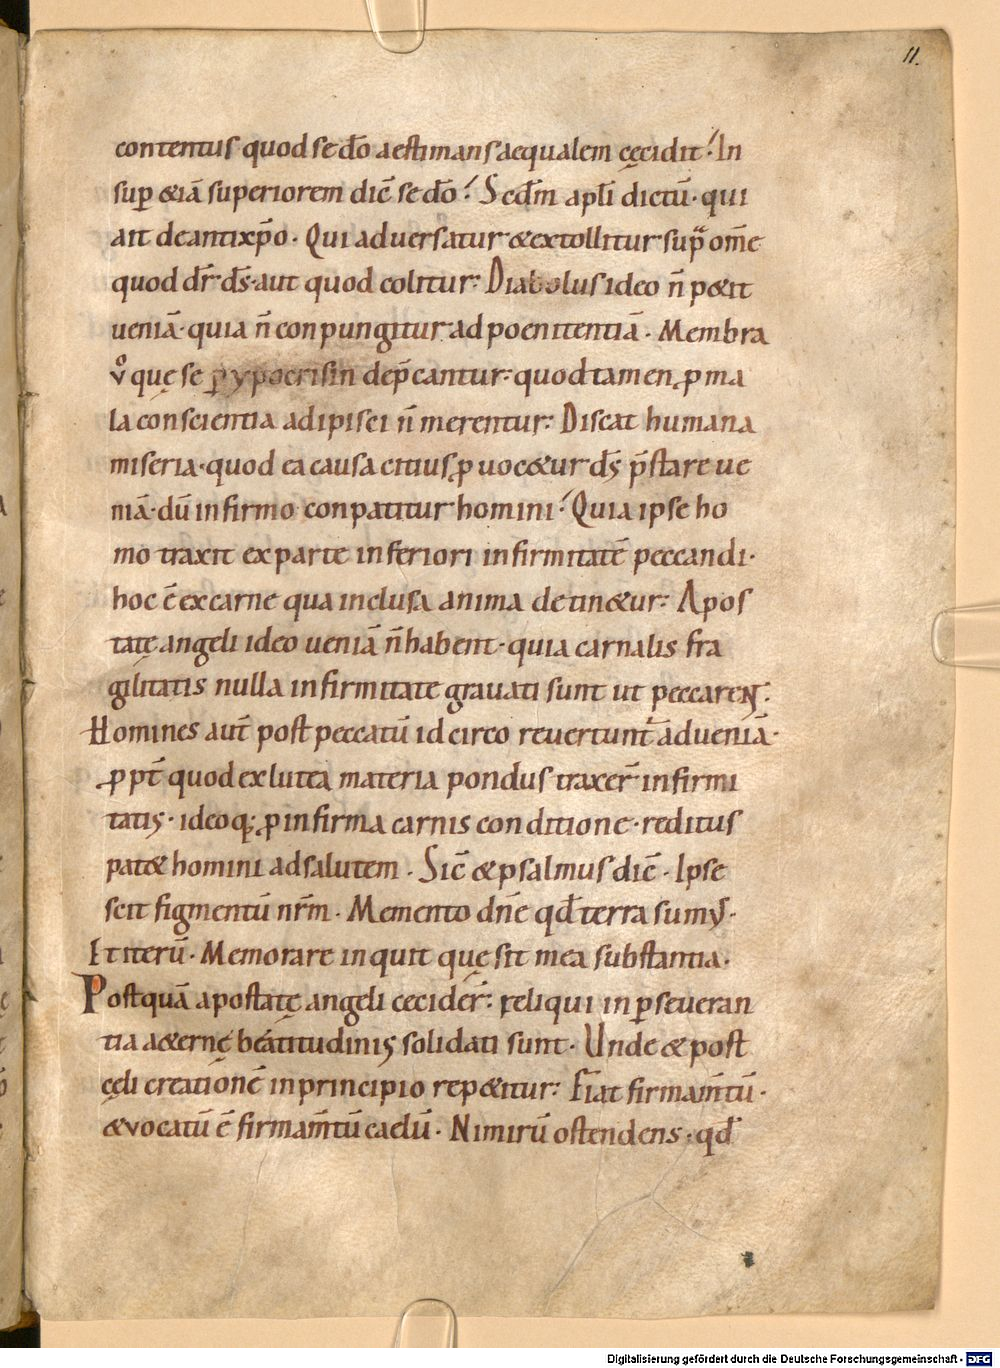 11.
contentus quod se dō aestimans aequalem cęcidit! In
suꝑ &iā superiorem dic̄ se dō! Scdm̄ apłi dictū· qui
ait de antixp̄o· Qui aduersatur & extollitur sup om̄e
quod dr̄ ds̄· aut quod colitur: Diabolus ideo n̄ p&it
ueniā· quia n̄ conpungitur ad poenitentiā· Membra
v̊ quę se ꝑ ypocrisin dep̄cantur: quod tamen ꝓ ma
la conscientia adipisci n̄ merentur: Discat humana
miseria· quod ea causa citius ꝓuoc&ur ds̄ p̄stare ue
niā· dū infirmo conpatitur homini! Quia ipse ho
mo traxit ex parte inferiori infirmitatē peccandi·
hoc ē ex carne qua inclusa anima detin&ur: Apos
tatę angeli ideo ueniā n̄ habent· quia carnalis fra
gilitatis nulla infirmitate grauati sunt ut peccarent:
Homines aut̄ post peccatū idcirco reuertunt ad ueniā·
ꝓpt̄ quod ex lutea materia pondus traxer̄ infirmi
tatis· ideoq; ꝓ infirma carnis conditione· reditus
pat& homini ad salutem· Sic̄ & psalmus dic̄· Ipse
scit figmentū nr̄m· Memento dn̄e qđ terra sumꝰ·
Et iterū· Memorare inquit quę sit mea substantia·
Postquā apostatę angeli cecider̄: reliqui in ꝑseueran
tia a&ernę beatitudinis solidati sunt· Unde & post
cęli creationē in principio rep&itur: Fiat firmam̄tū·
& vocatū ē firmam̄tū caelū· Nimirū ostendens· qđ
Digitalisierung gefördert durch die Deutsche Forschungsgemeinschaft - DFG